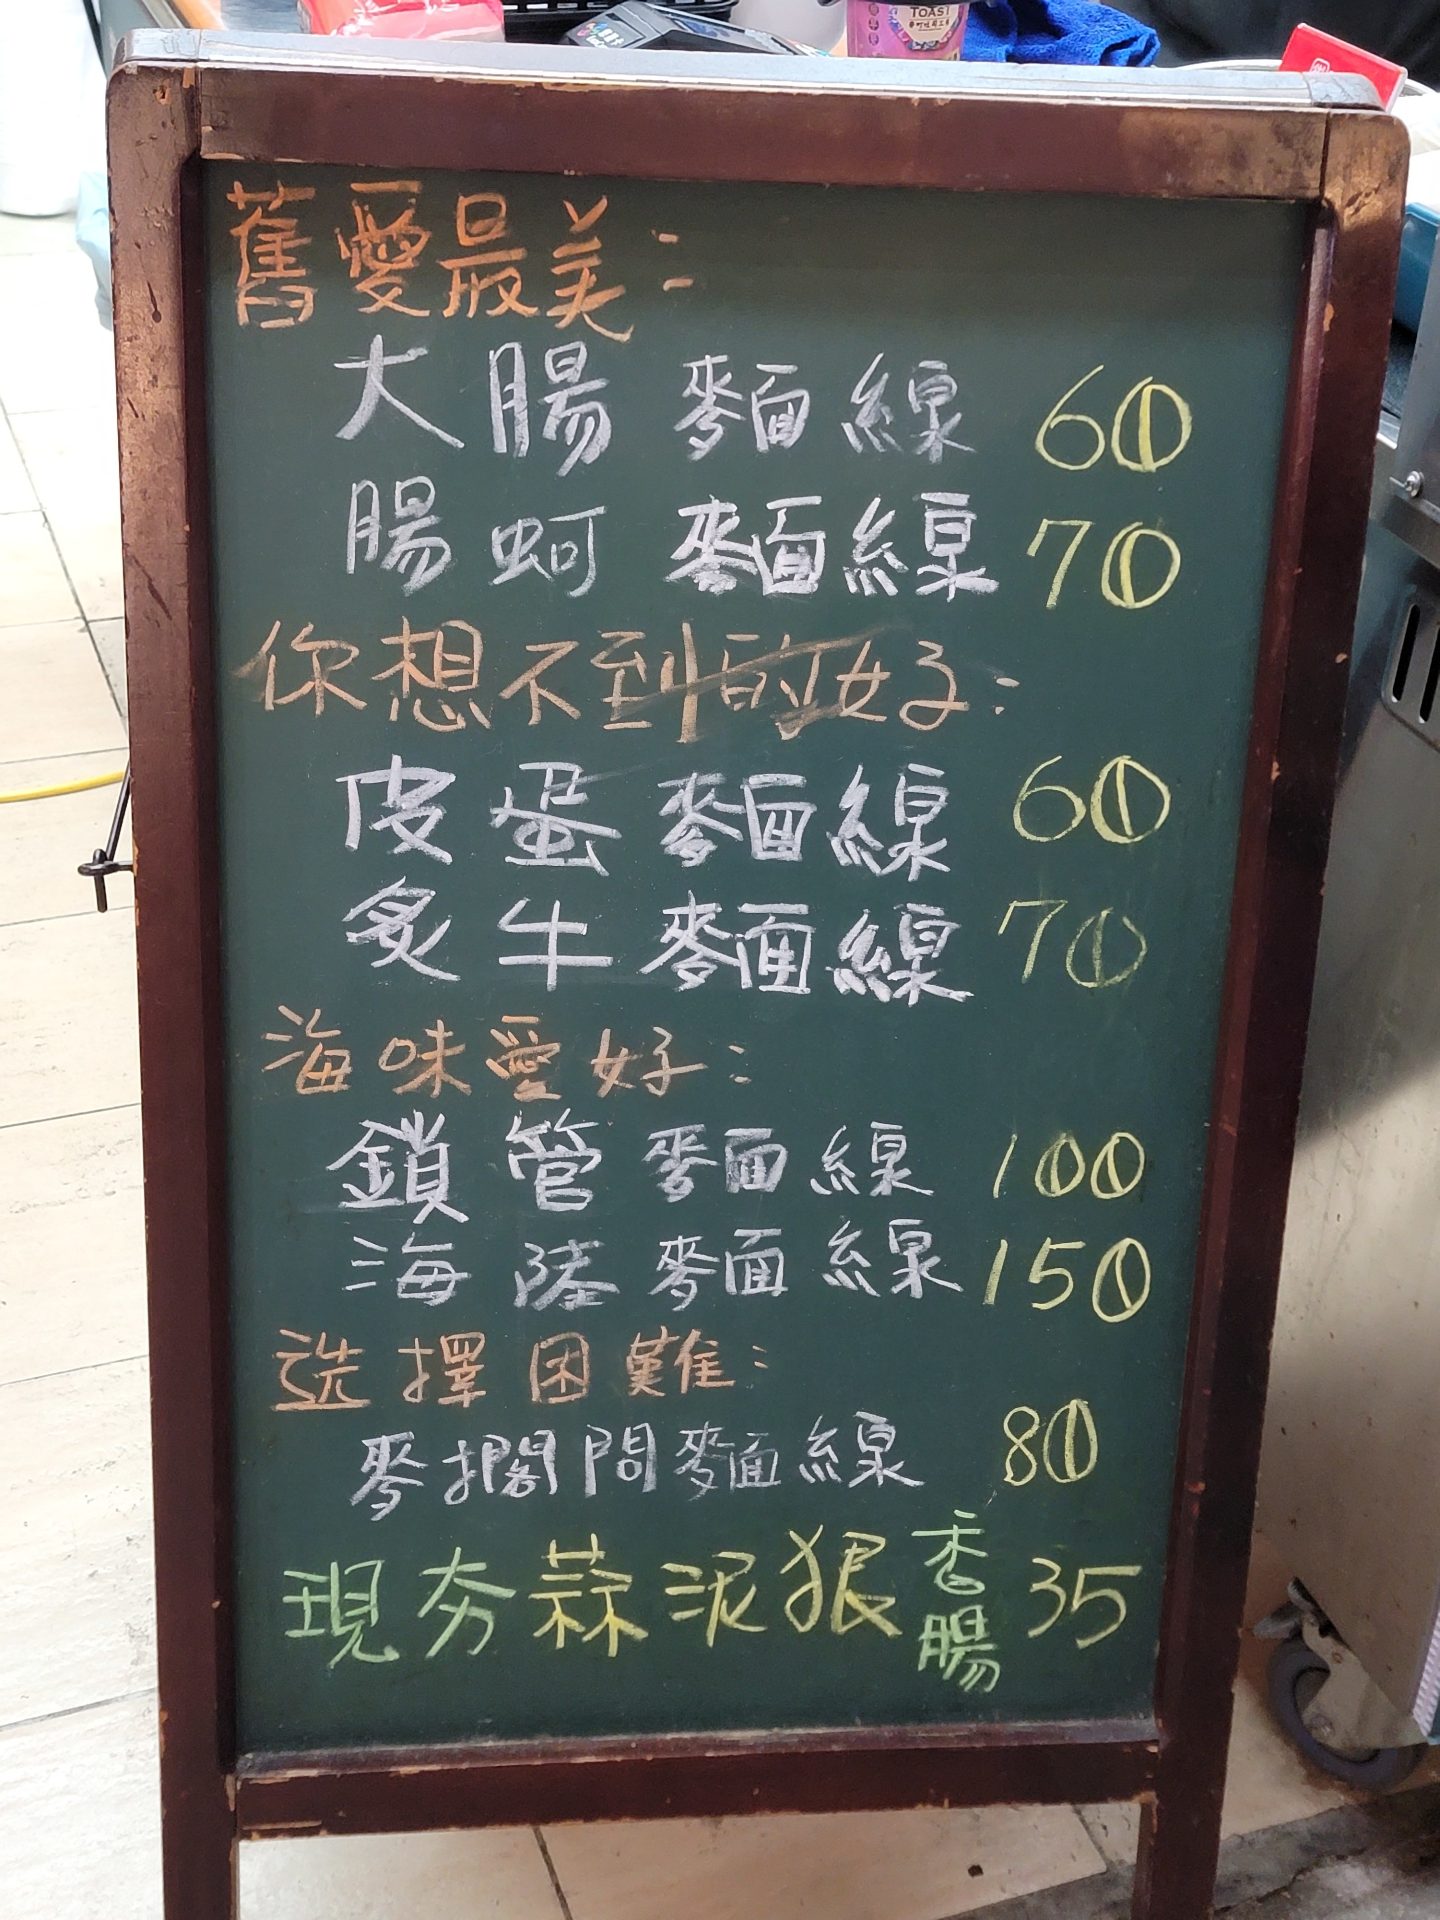 TOAST
舊愛最美：
大腸麵線 60
腸蚵麵線 70
你想不到的好：
皮蛋麵線 60
炙牛麵線 70
海味愛好：
鎖管麵線 100
海陸麵線 150
選擇困難：
麥擱問麵線 80
現夯蒜泥狠香腸 35